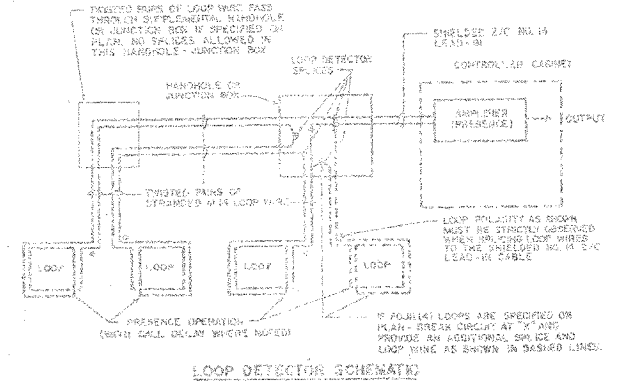 TWISTED PAIRS OF LOOP WIRE PASS
THROUGH SUPPLEMENTAL HANDHOLE
OR JUNCTION BOX IF SPECIFIED ON
PLAN. NO SPLICES ALLOWED IN
THIS HANDHOLE - JUNCTION BOX
LOOP DETECTOR
SPLICES
SHIELDED 2/C NO. 14
LEAD-IN
CONTROLLER CABINET
HANDHOLE OR
JUNCTION BOX
AMPLIFIER
(PRESENCE)
OUTPUT
TWISTED PAIRS OF
STRANDED #14 LOOP WIRE
LOOP POLARITY AS SHOWN
MUST BE STRICTLY OBSERVED
WHEN SPLICING LOOP WIRES
TO THE SHIELDED NO. 14 2/C
LEAD-IN CABLE
LOOP
LOOP
LOOP
LOOP
PRESENCE OPERATION
(WITH CALL DELAY WHERE NOTED)
IF FOUR(4) LOOPS ARE SPECIFIED ON
PLAN - BREAK CIRCUIT AT "X" AND
PROVIDE AN ADDITIONAL SPLICE AND
LOOP WIRE AS SHOWN IN DASHED LINES.
LOOP DETECTOR SCHEMATIC